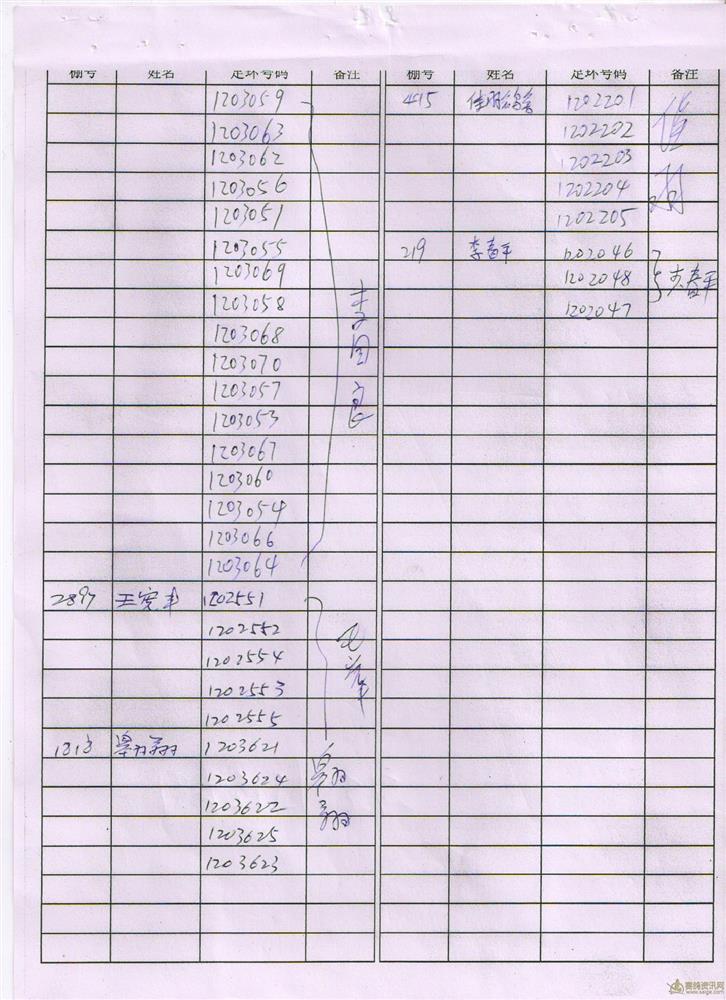 棚号 姓名 足环号码 备注
1203059
1203063
1203062
1203056
1203051
1203055
1203069
1203058
1203068
1203070
1203057
1203053
1203067
1203060
1203054
1203066
1203064
李国良
2897 王宪丰 1202551
1202552
1202554
1202553
1202555
1203621
1203624
1203622
1203625
1203623
棚号 姓名 足环号码 备注
415 1202201
1202202
1202203
1202204
1202205
219 李春平 1202046
1202048
1202047
李春平
赛鸽资讯网
www.saige.com